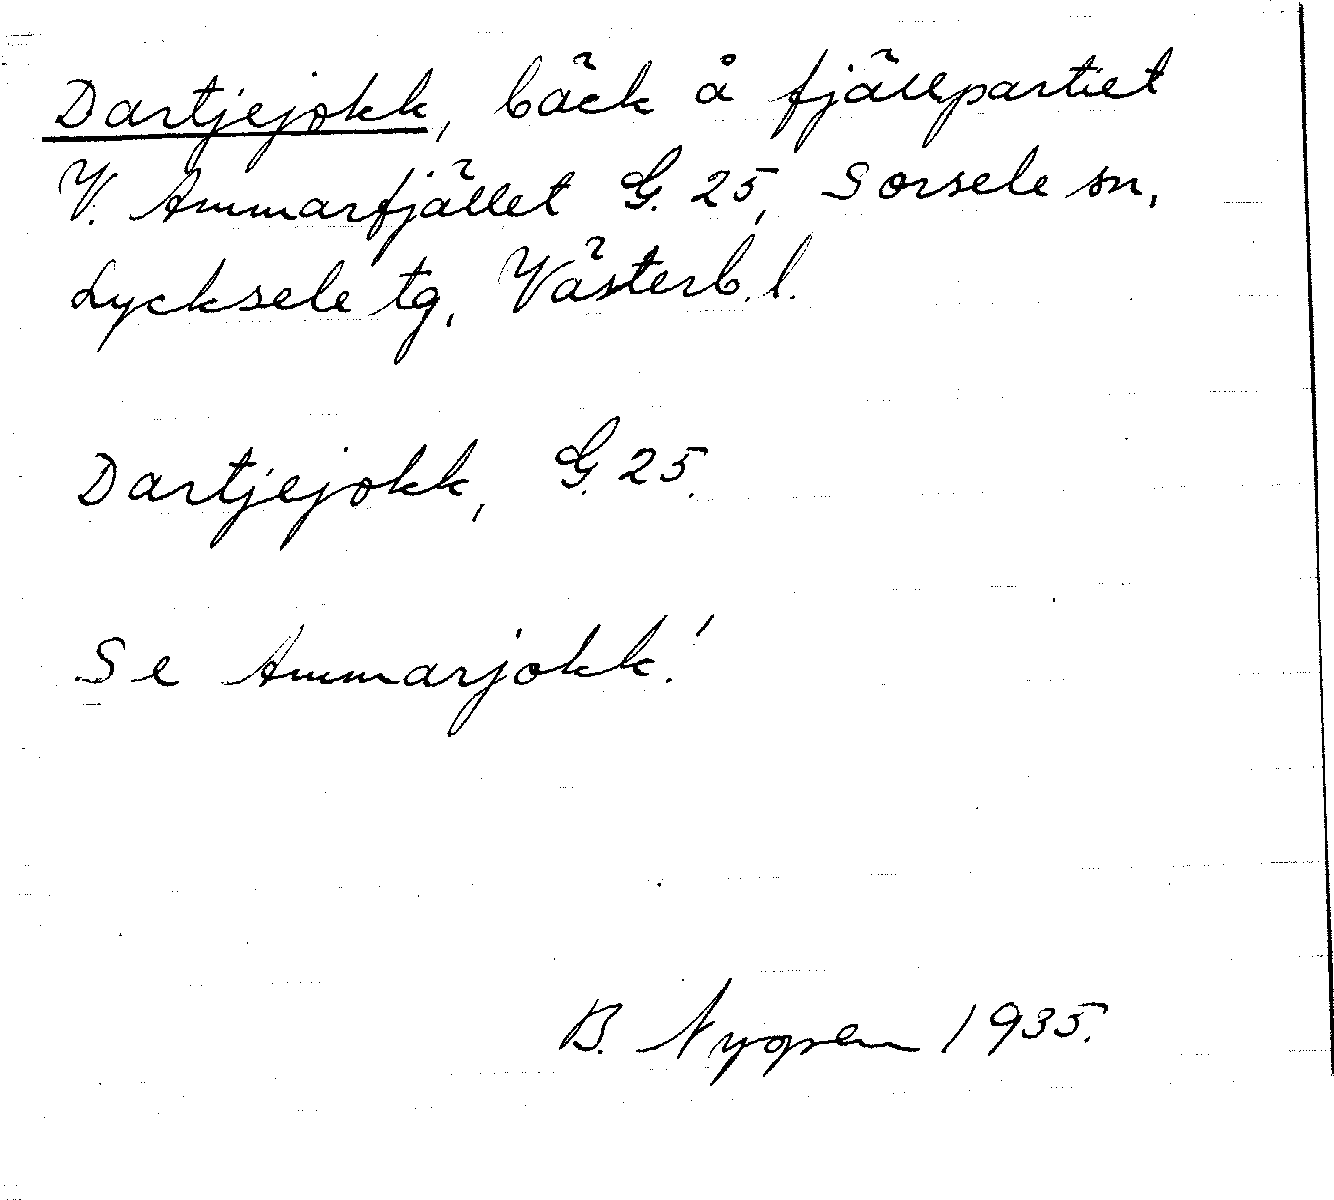 Dartjejokk, bäck å fjällpartiet
V. Ammarfjället G. 25, Sorsele sn,
Lycksele tg, Västerb. l.
Dartjejokk, G. 25.
Se Ammarjokk!
B. Nygren 1935.